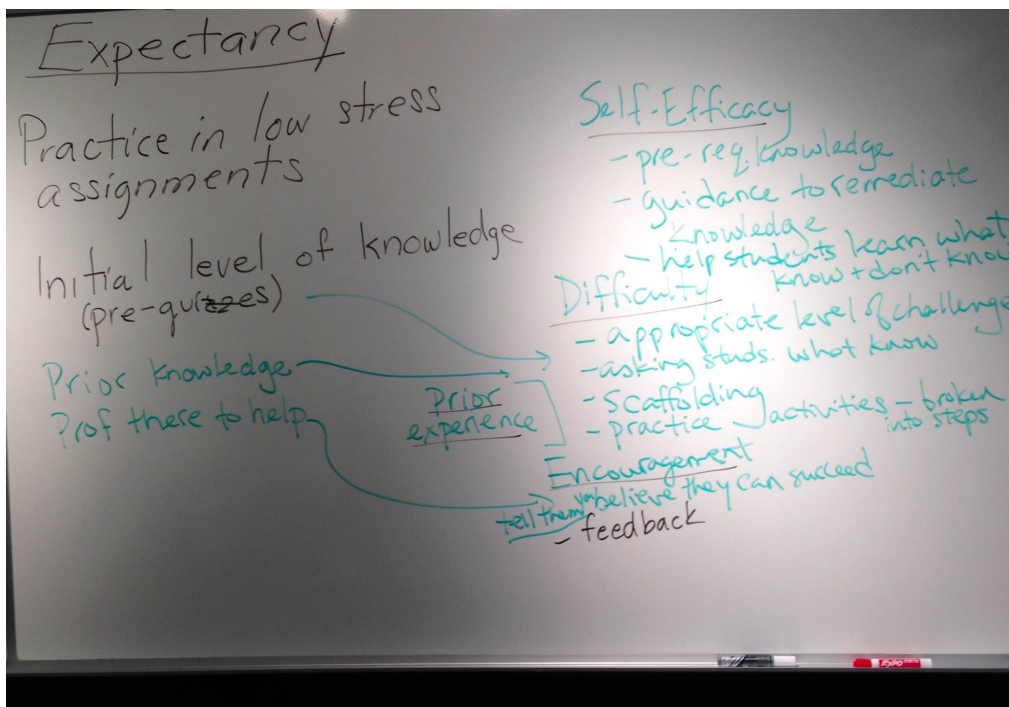 Expectancy
Practice in low stress
assignments
Initial level of knowledge
(pre-quizzes)
Prior knowledge
Prof there to help
Prior
experience
Self-Efficacy
- pre-req. knowledge
- guidance to remediate
knowledge
- help students learn what
know + don't know
Difficulty
- appropriate level of challenge
- asking studs. what know
- scaffolding
- practice activities - broken
into steps
Encouragement
tell them you believe they can succeed
- feedback
EXPO